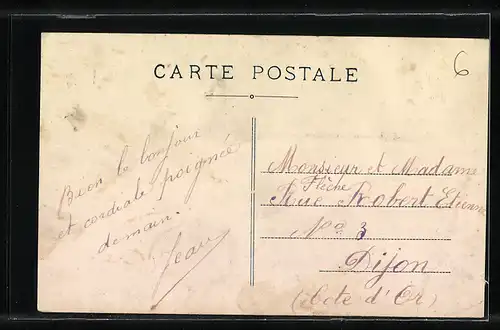 CARTE POSTALE
6
Bien le bonjour
et cordiale poignée
de main.
Jean
Monsieur et Madame
Flèche
Rue Robert Etienne
No 3
Dijon
(Cote d'Or)